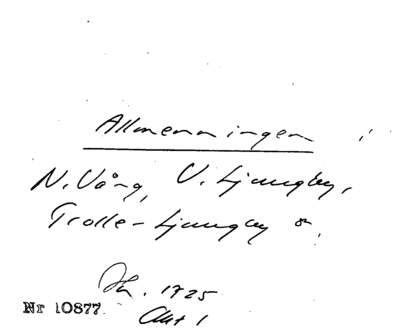 Allmenningen i
N. Vång, V. Ljungby,
Trolle-Ljungby &.
1725
Nr 10877.
Akt 1